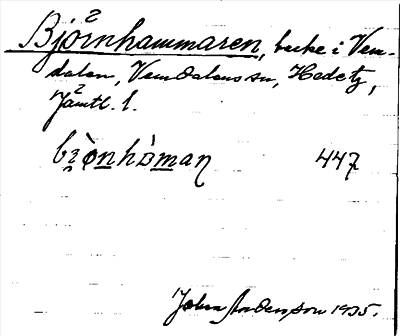 Bjö²rnhammaren, backe i Vem-
dalen, Vemdalens sn, Hede tg,
Jämtl. l.
bi̯ò̱nhò̱ma̱ŋ 447
John Anderson 1935.